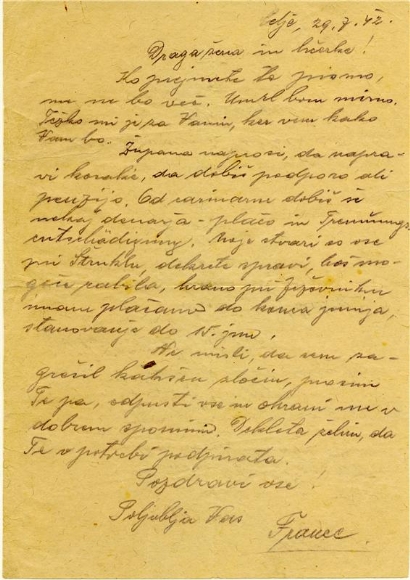 Celje, 29. 7. 42.
Draga žena in hčerke!
Ko prejmete to pismo,
me ne bo več. Umrl bom mirno.
Težko mi je za Vami, ker vem kako
Vam bo.
Župana naprosi, da napra-
vi korake, da dobiš podporo ali
penzijo. Od carinarne dobiš še
nekaj denarja - plačo in Trennungs-
entschädigung, moje stvari so vse
pri Struklu, dekrete spravi, boš mo-
goče rabila, hrano pri
imam plačano do konca junija,
stanovanje do 15. jun.
Ne misli, da sem za-
grešil kakšen zločin, prosim
Te pa, odpusti vse in ohrani me v
dobrem spominu. Dekleta želim, da
Te v potrebi podpirata.
Pozdravi vse!
Poljublja Vas
Franc